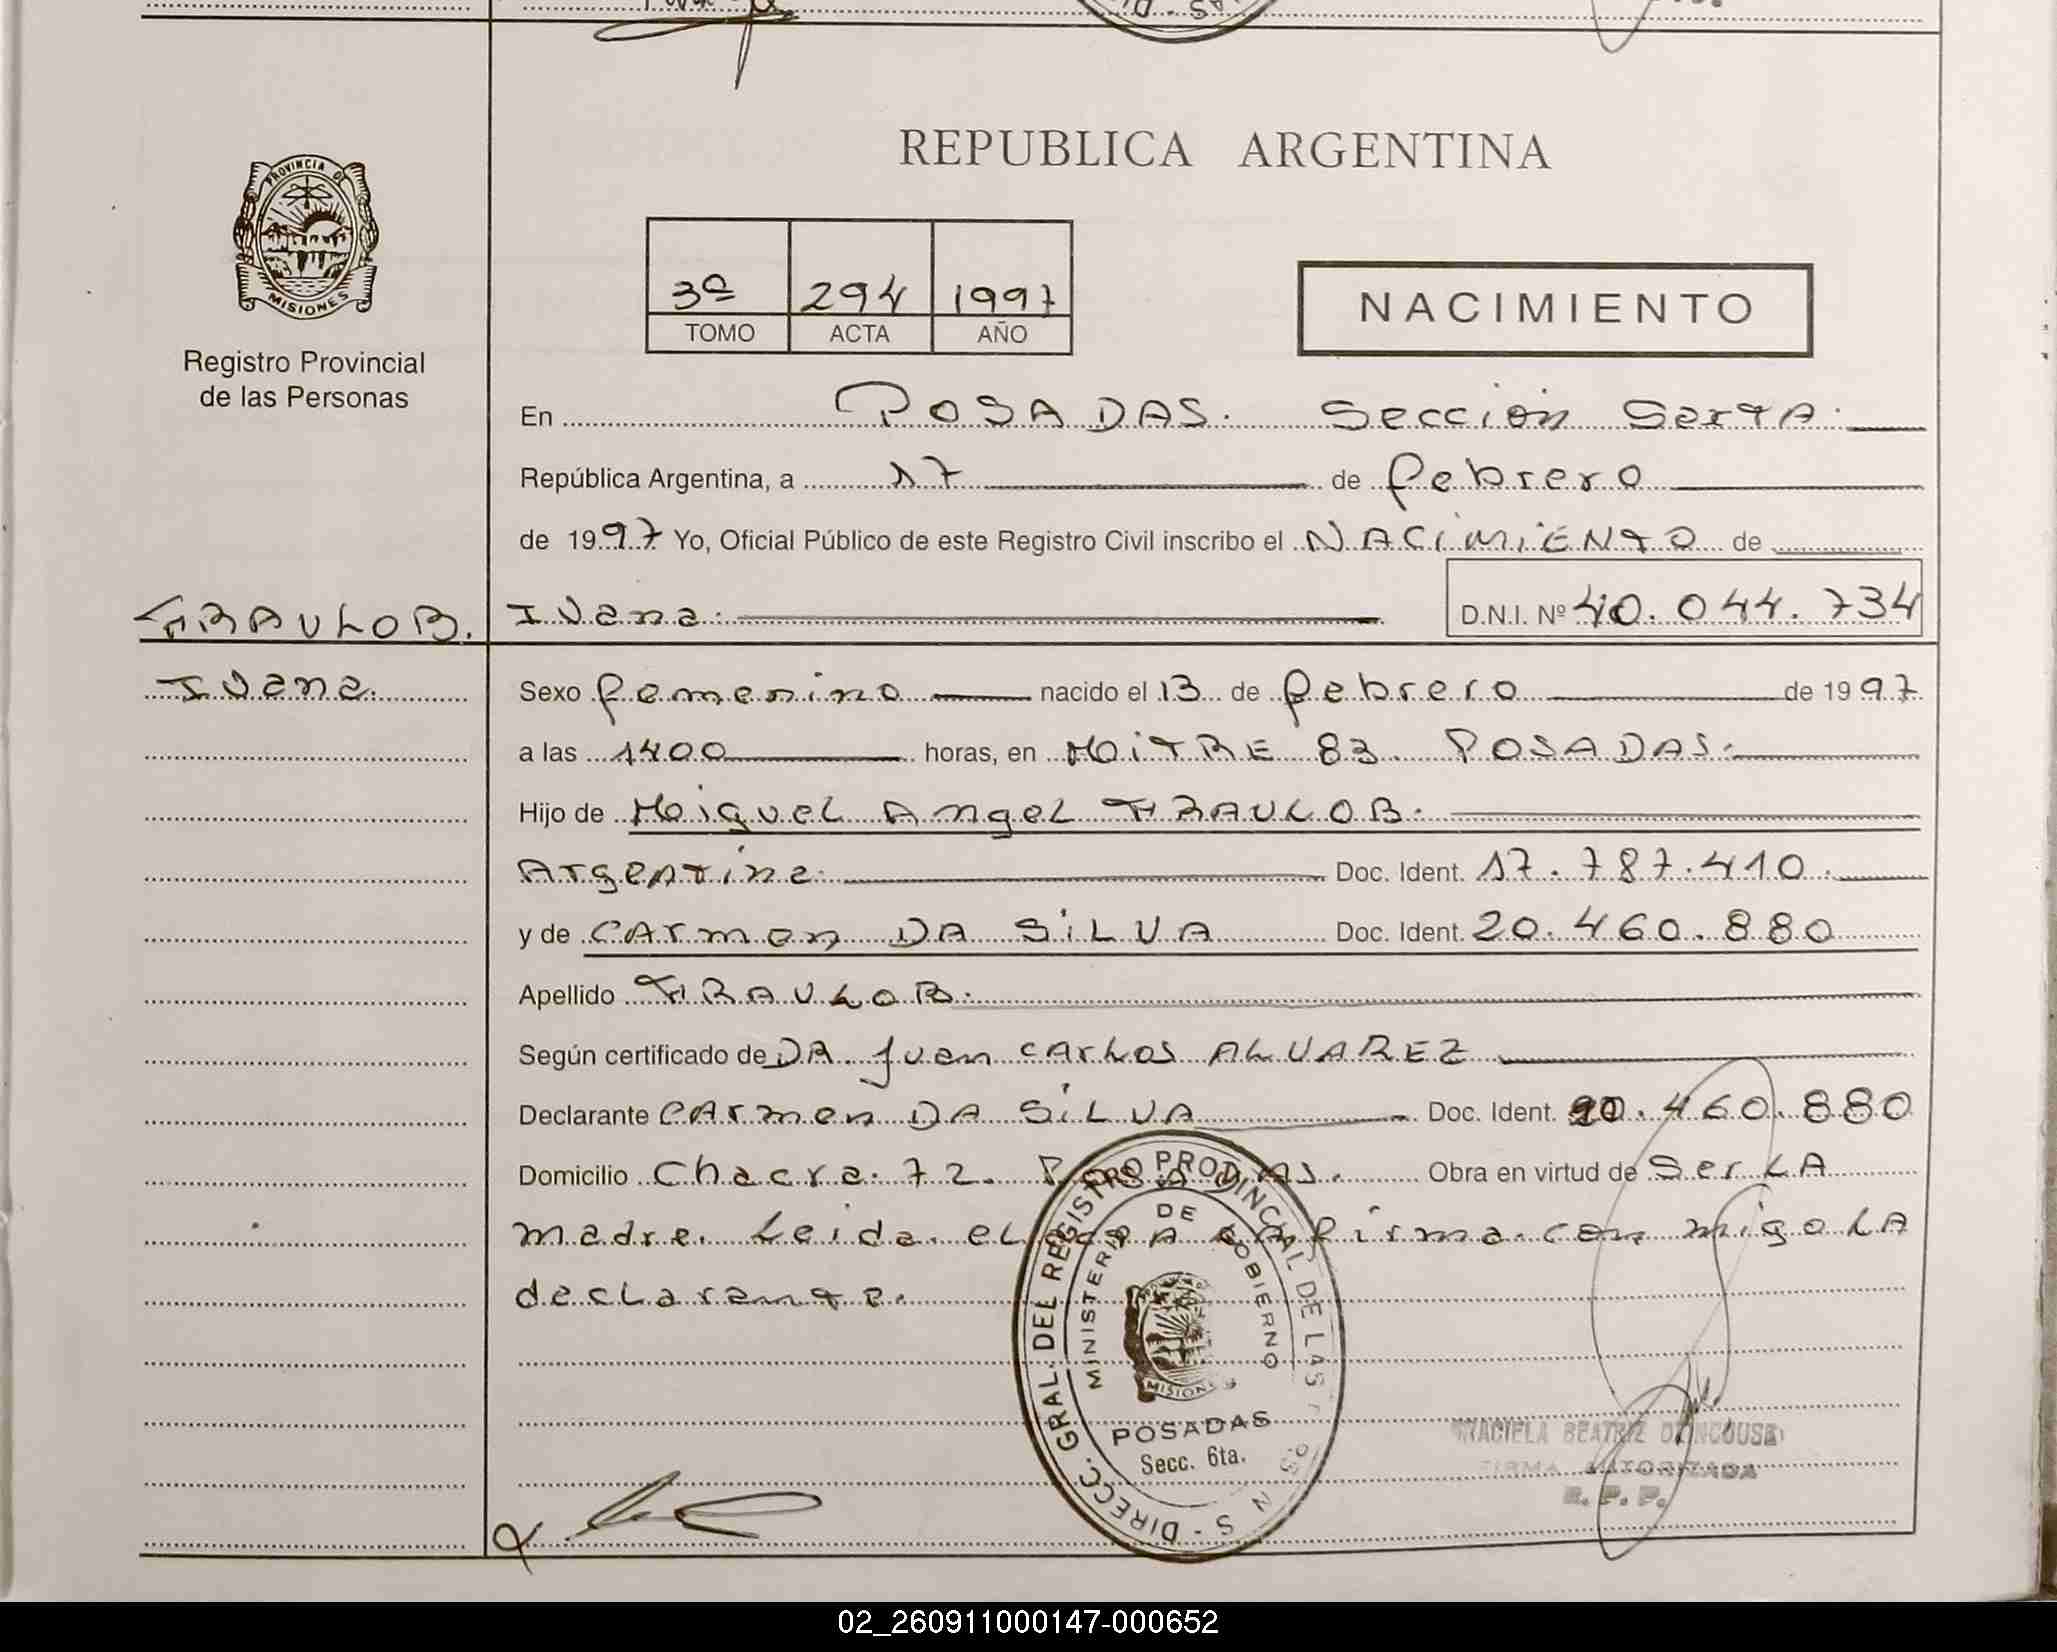 REPUBLICA ARGENTINA
PROVINCIA DE
MISIONES
Registro Provincial
de las Personas
3º 294 1997
TOMO ACTA AÑO
NACIMIENTO
En POSADAS. Sección Sexta.
República Argentina, a 17 de febrero
de 1997 Yo, Oficial Público de este Registro Civil inscribo el NACIMIENTO de
Ivana. D.N.I. Nº 40.044.734
FRAULOB.
Ivana.
Sexo femenino nacido el 13 de febrero de 1997
a las 1400 horas, en MITRE 83. POSADAS.
Hijo de Miguel Angel FRAULOB.
Argentina. Doc. Ident. 17.787.410.
y de Carmen DA SILVA Doc. Ident. 20.460.880
Apellido FRAULOB.
Según certificado de DR. Juan Carlos ALVAREZ
Declarante Carmen DA SILVA Doc. Ident. 20.460.880
Domicilio Chacra. 72. POSADAS. Obra en virtud de Ser LA
madre. Leida. el acta la firma. con migo LA
declarante.
DIRECC. GRAL. DEL REGISTRO PROVINCIAL DE LAS
MINISTERIO DE GOBIERNO
MISIONES
POSADAS
Secc. 6ta.
GRACIELA BEATRIZ
FIRMA AUTORIZADA
R. P. P.
02_260911000147-000652